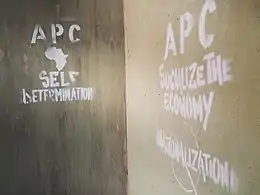 APC
SELF
DETERMINATION
APC
SOCIALIZE THE
ECONOMY
NATIONALIZATION